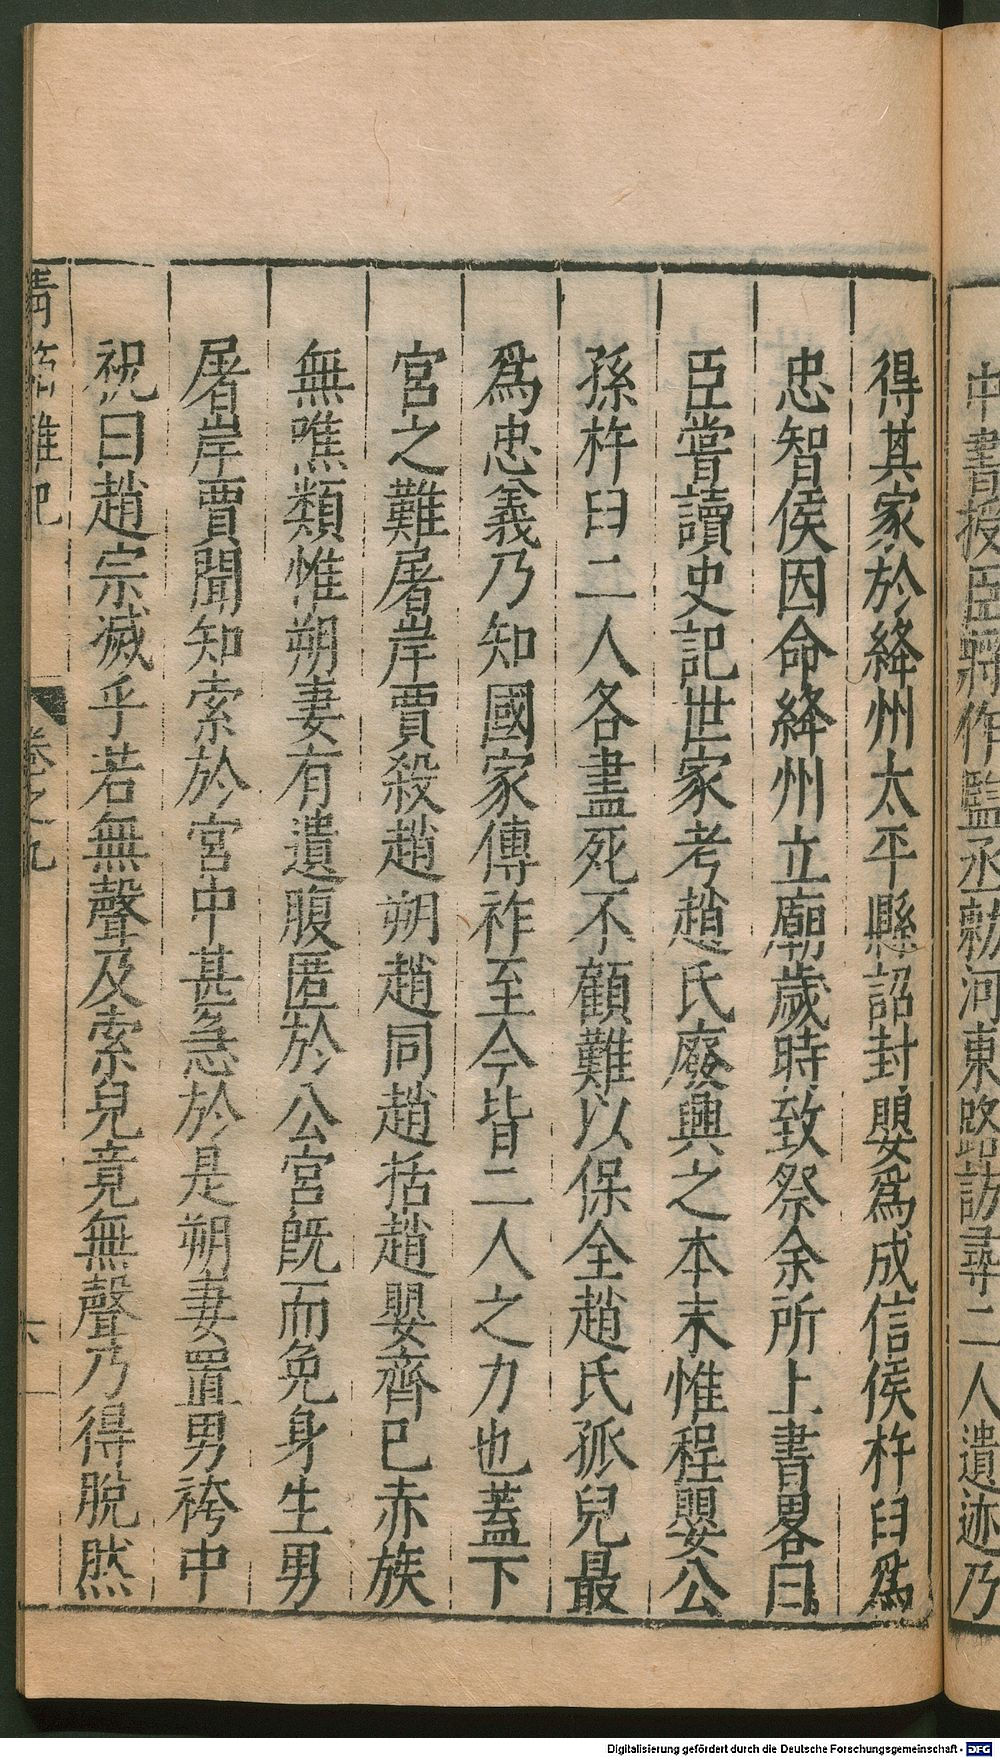 中書授臣將作監丞勅河東路訪尋二人遺迹乃
得其家於絳州太平縣詔封嬰爲成信侯杵臼爲
忠智侯因命絳州立廟歲時致祭余所上書畧曰
臣嘗讀史記世家考趙氏廢興之本末惟程嬰公
孫杵臼二人各盡死不顧難以保全趙氏孤兒最
爲忠義乃知國家傳祚至今皆二人之力也蓋下
宮之難屠岸賈殺趙朔趙同趙括趙嬰齊已赤族
無噍類惟朔妻有遺腹匿於公宮旣而免身生男
屠岸賈聞知索於宮中甚急於是朔妻置男袴中
祝曰趙宗滅乎若無聲及索兒竟無聲乃得脫然
青箱雜記 卷之九 六
Digitalisierung gefördert durch die Deutsche Forschungsgemeinschaft - DFG